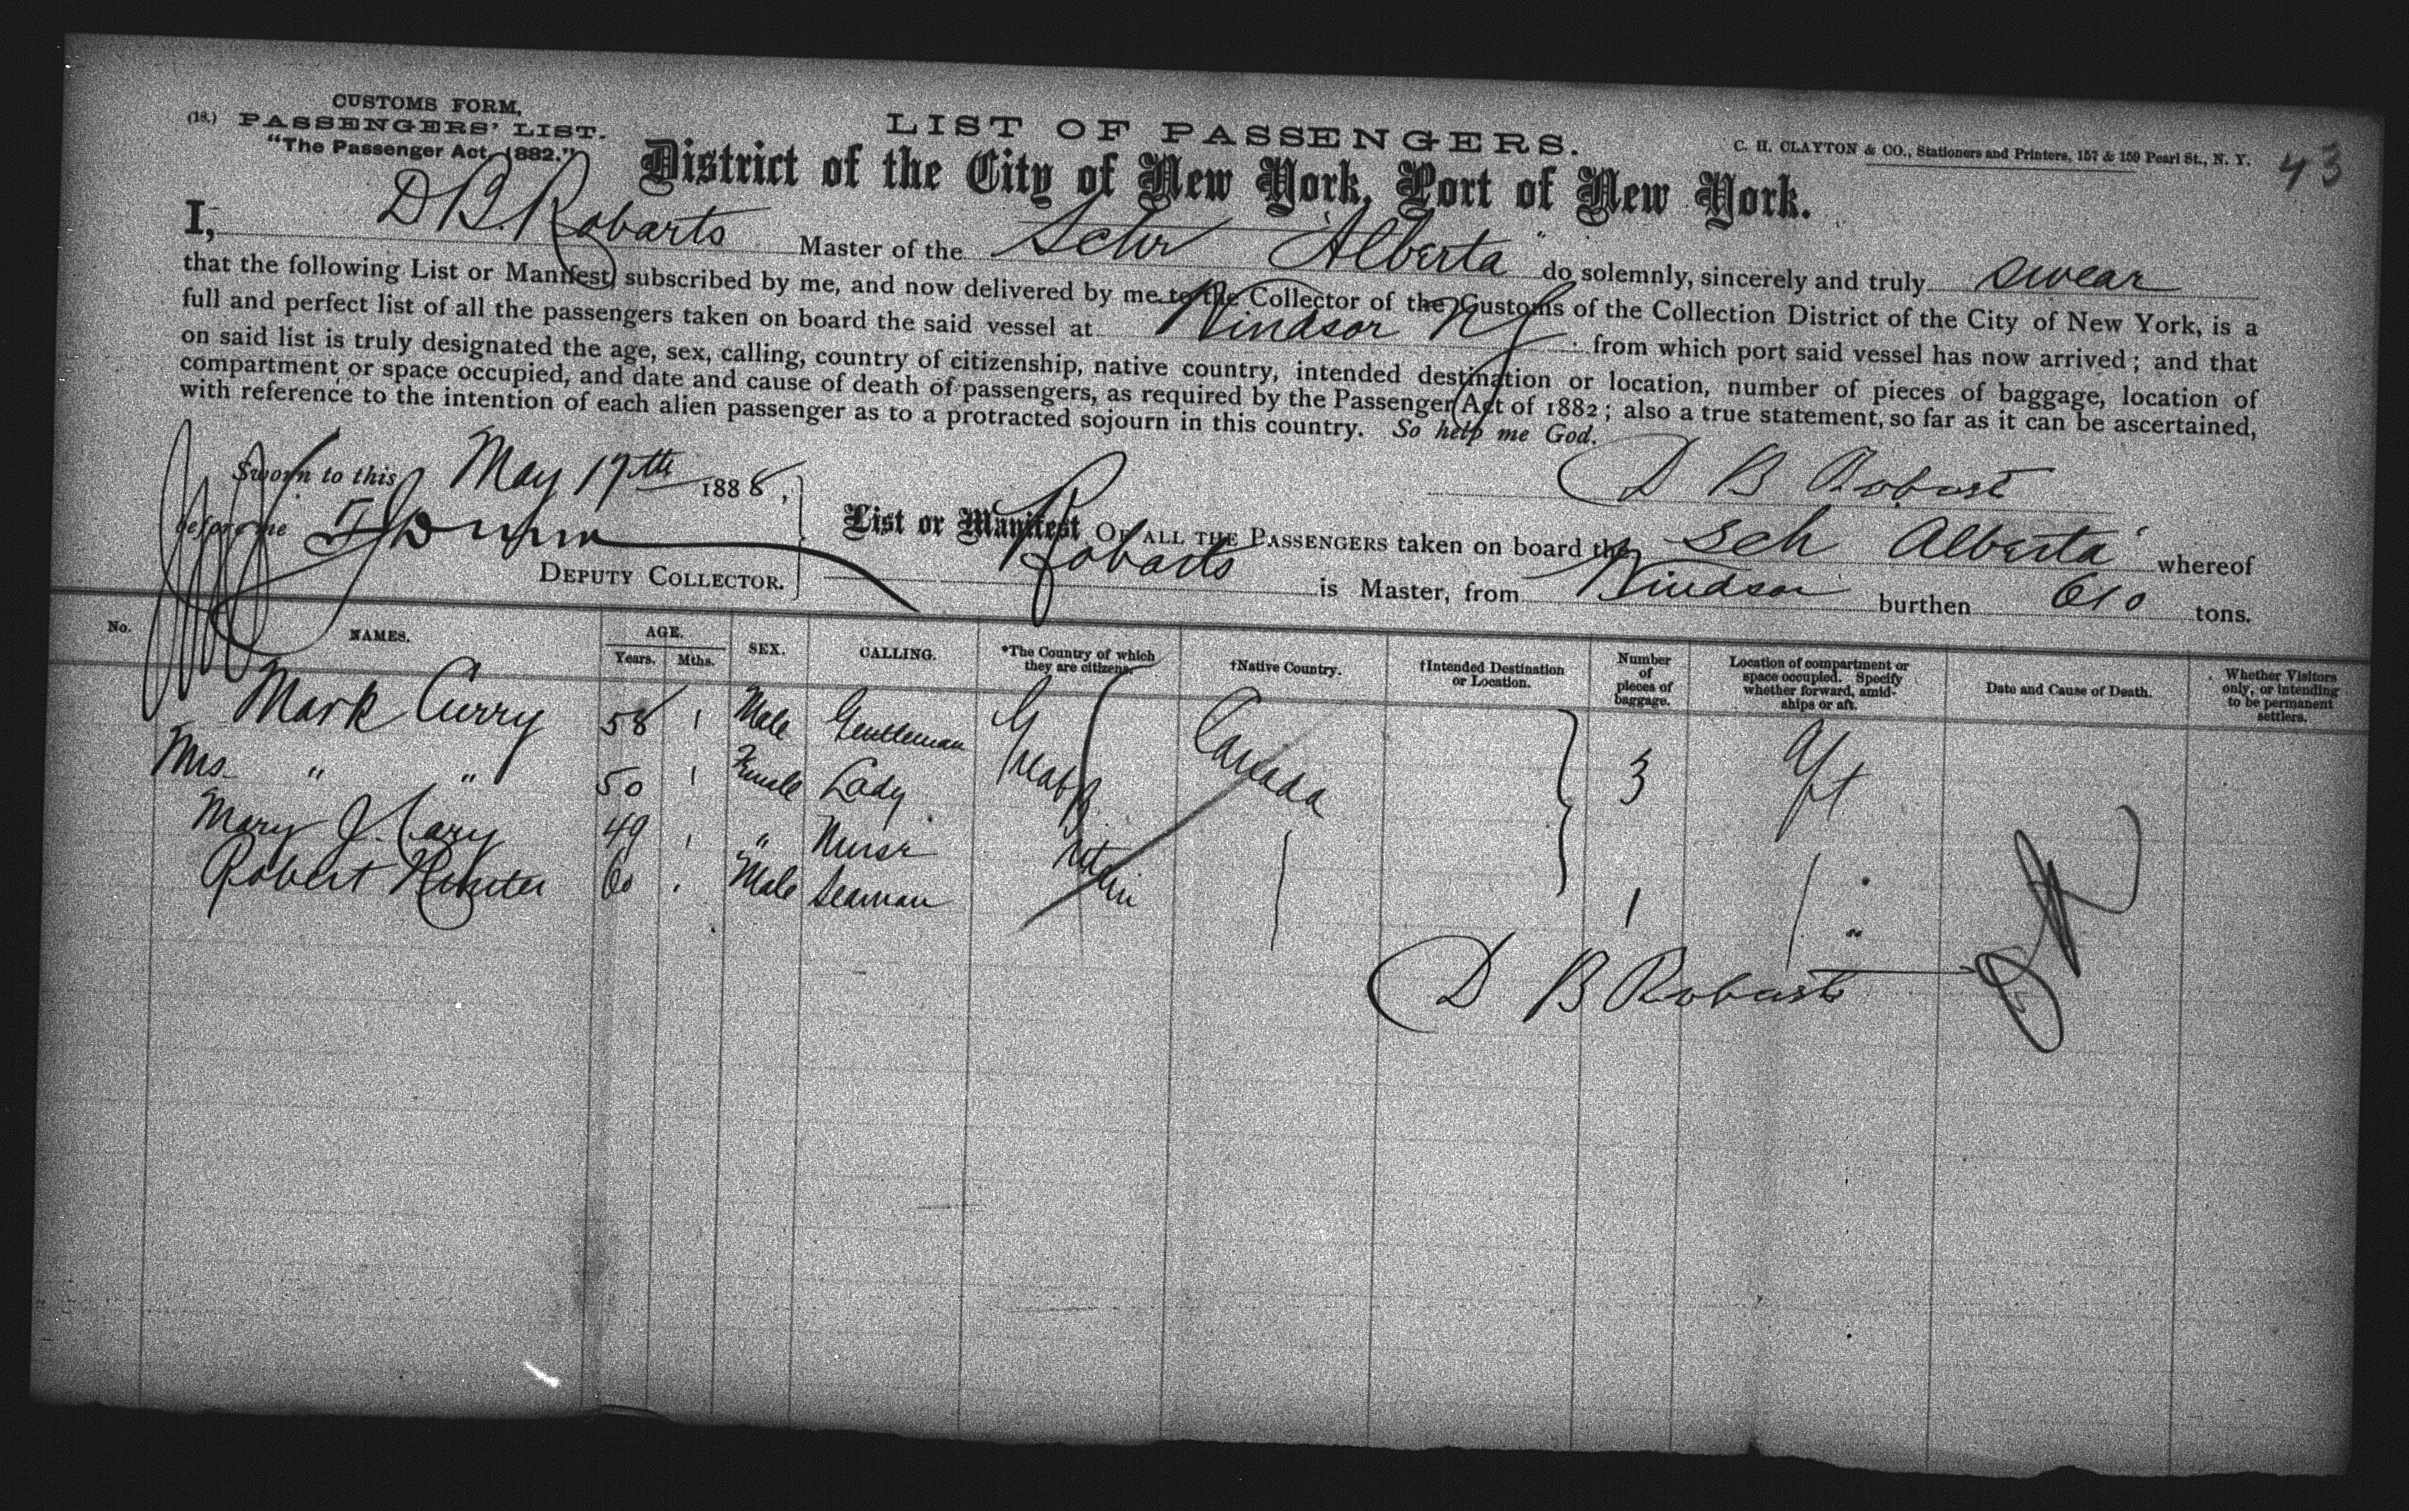 CUSTOMS FORM,
(18.) PASSENGERS' LIST.
"The Passenger Act, 1882."
LIST OF PASSENGERS.
C. H. CLAYTON & CO., Stationers and Printers, 157 & 159 Pearl St., N. Y.
43
District of the City of New York, Port of New York.
I, D B. Robarts Master of the Schr "Alberta" do solemnly, sincerely and truly swear
that the following List or Manifest, subscribed by me, and now delivered by me to the Collector of the Customs of the Collection District of the City of New York, is a
full and perfect list of all the passengers taken on board the said vessel at Windsor NS from which port said vessel has now arrived; and that
on said list is truly designated the age, sex, calling, country of citizenship, native country, intended destination or location, number of pieces of baggage, location of
compartment or space occupied, and date and cause of death of passengers, as required by the Passenger Act of 1882; also a true statement, so far as it can be ascertained,
with reference to the intention of each alien passenger as to a protracted sojourn in this country. So help me God.
Sworn to this May 17th 1888,
D B Robarts
before me
DEPUTY COLLECTOR.
List or Manifest OF ALL THE PASSENGERS taken on board the Sch Alberta whereof
Robarts is Master, from Windsor burthen 610 tons.
No. NAMES. AGE. Years. Mths. SEX. CALLING. *The Country of which they are citizens. †Native Country. †Intended Destination or Location. Number of pieces of baggage. Location of compartment or space occupied. Specify whether forward, amidships or aft. Date and Cause of Death. Whether Visitors only, or intending to be permanent settlers.
Mark Curry 58 Male Gentleman Great Britain Canada 3 Aft
Mrs " " 50 Female Lady
Mary J. Cary 49 " Nurse
Robert 60 Male Seaman 1 "
D B Robarts